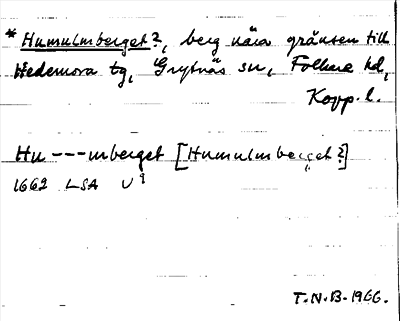 * Humulmberget?, berg nära gränsen till
Hedemora tg, Grytnäs sn, Folkare hd,
Kopp. l.
Hu---mberget [Humulmberget?]
1662 LSA U 9
T.N.B. 1966.